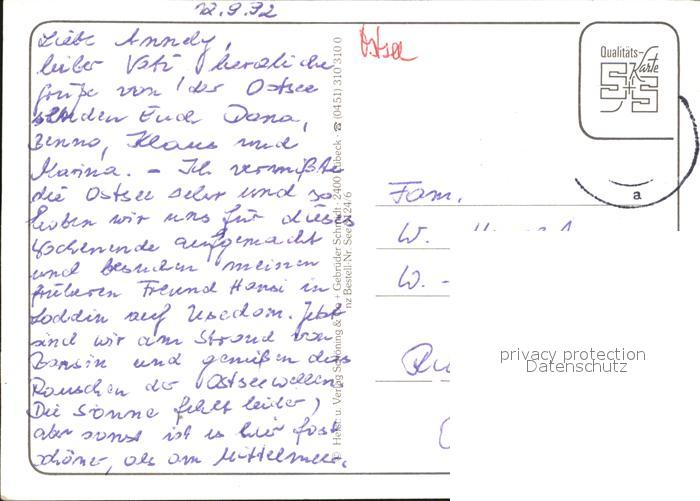 12.9.92
Liebe Anndy,
lieber Vati herzliche
Grüße von der Ostsee
senden Euch Dana,
Benno, Klaus und
Marina. – Ich vermißte
die Ostsee sehr und so
haben wir uns für dieses
Wochenende aufgemacht
und besuchen meinen
früheren Freund Hansi in
Loddin auf Usedom. Jetzt
sind wir am Strand von
Bansin und genießen das
Rauschen der Ostseewellen
Die Sonne fehlt leider,
aber sonst ist es hier fast
schöner, als am Mittelmeer.
Ostsee
Schöning & Co + Gebrüder Schmidt · 2400 Lübeck · ☎ (0451) 310 310 0
Bestell-Nr. See
Qualitäts-
Karte
S+S
a
Fam.
W.
W. -
privacy protection
Datenschutz